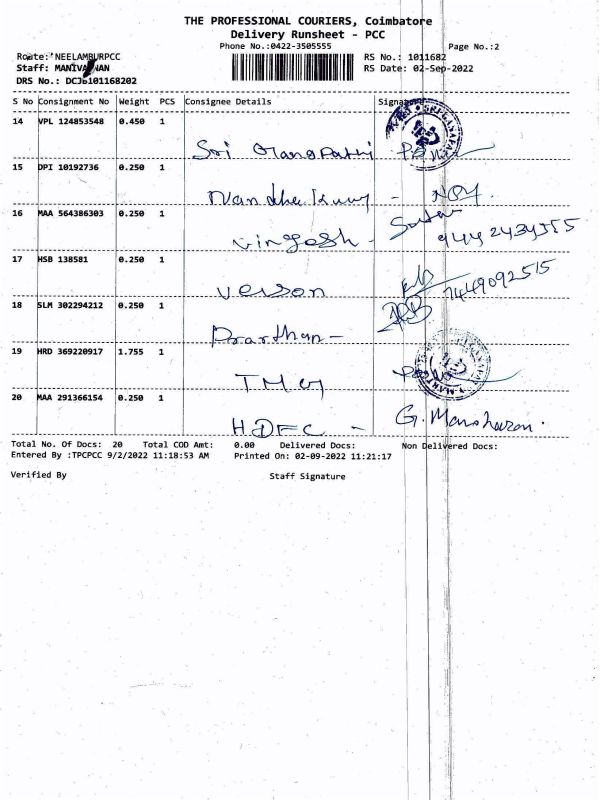 THE PROFESSIONAL COURIERS, Coimbatore
Delivery Runsheet - PCC
Phone No.:0422-3505555
Page No.:2
Route: NEELAMBURPCC
RS No.: 1011682
Staff: MANIVANNAN
RS Date: 02-Sep-2022
DRS No.: DCJb101168202
S No Consignment No Weight PCS Consignee Details Signature
14 VPL 124853548 0.450 1
Sri
15 DPI 10192736 0.250 1
16 MAA 564386303 0.250 1
vingesh -
17 HSB 138581 0.250 1
verson 7449092515
18 SLM 302294212 0.250 1
Prarthan -
19 HRD 369220917 1.755 1
20 MAA 291366154 0.250 1
HDFC - G. Manoharan.
Total No. Of Docs: 20 Total COD Amt: 0.00 Delivered Docs: Non Delivered Docs:
Entered By :TPCPCC 9/2/2022 11:18:53 AM Printed On: 02-09-2022 11:21:17
Verified By Staff Signature